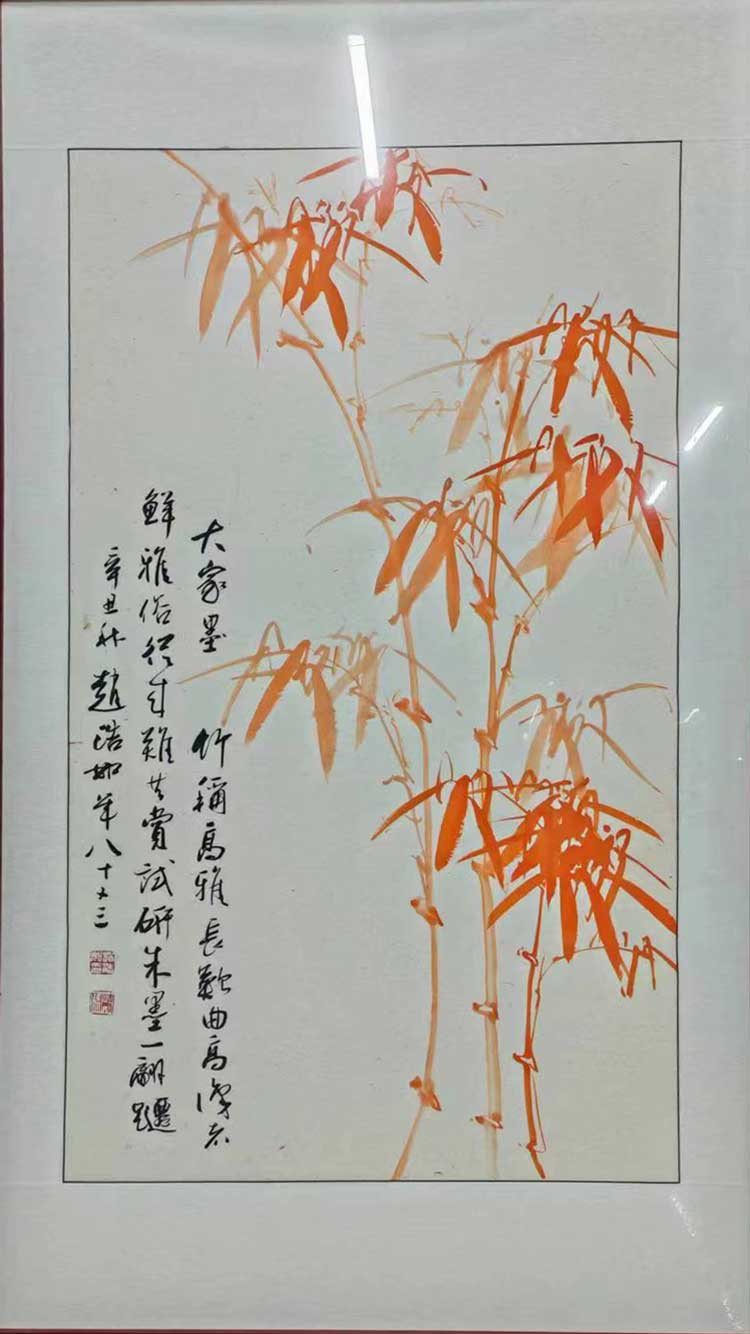 大家墨竹稱高雅長歎曲高識者
鮮雅俗從来難共賞試研朱墨一翩躚
辛丑秋趙浩如年八十又三